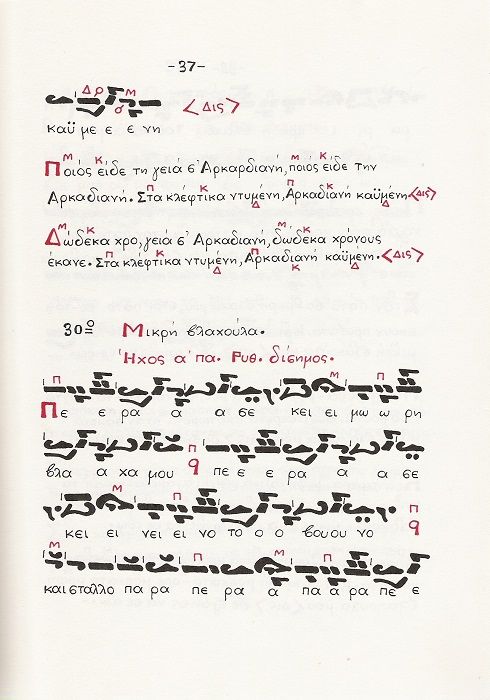 -37-
καϋ με ε ε νη <Δις>
Ποιός είδε τη γειά σ' Αρκαρδιανή, ποιός είδε την
Αρκαδιανή. Στα κλέφτικα ντυμένη, Αρκαδιανή καϋμένη <Δις>
Δώδεκα χρο, γειά σ' Αρκαδιανή, δώδεκα χρόνους
έκανε. Στα κλεφτικα ντυμένη, Αρκαδιανή καϋμένη. <Δις>
30ο Μικρή βλαχούλα.
Ήχος α' πα. Ρυθ. δίσημος.
Πε ε ρα α α σε κει ει μω ω ρη
βλα α χα μου πε ε ε ρα α α σε
κει ει νει ει νο το ο ο βου ου νο
και σταλλο πα ρα πε ρα α πα α ρα πε ε